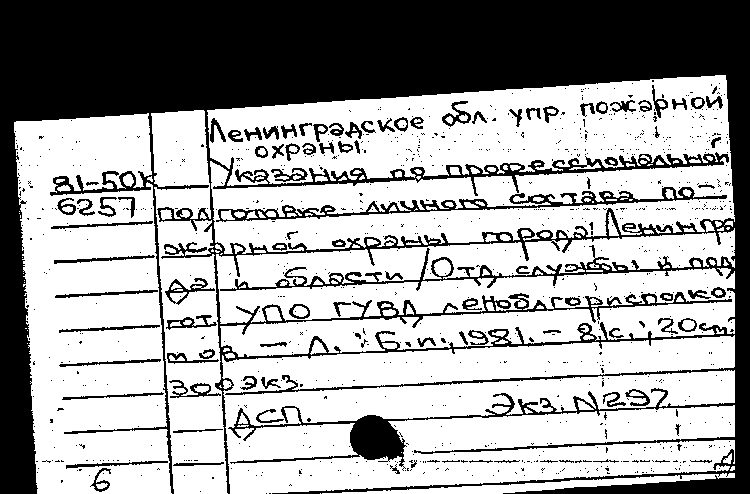 Ленинградское обл. упр. пожарной
охраны.
81-50к
Указания по профессиональной
6257
подготовке личного состава по-
жарной охраны города Ленингра
да и области / Отд. службы и под
гот. УПО ГУВД леноблгорисполко-
мов. - Л. : Б.и., 1981. - 81с.; 20см.
300 экз.
ДСП. Экз. N 297
6